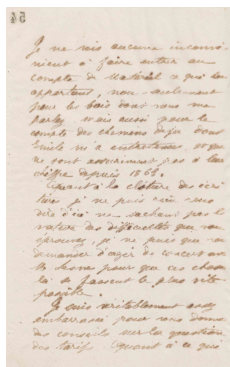 54
Je ne vois aucun inconvé-
nient à faire entrer au
compte de Matériel ce qui lui
appartient, non seulement
pour les bois dont vous me
parlez mais aussi pour le
compte des chemins de fer dont
Emile m'a entretenu, et que
ne sont assurément pas à leur
chiffre depuis 1868.
Quant à la clôture des écri
tures, je ne puis rien vous
dire d'ici ne sachant pas la
nature des difficultés que vous
éprouvez, je ne puis que vous
demander d'agir de concert avec
pour que ces choses
là se fassent le plus vite
possible.
Je suis véritablement assez
embarrassé pour vous donner
des conseils sur la question
des tarifs. Quant à ce qui